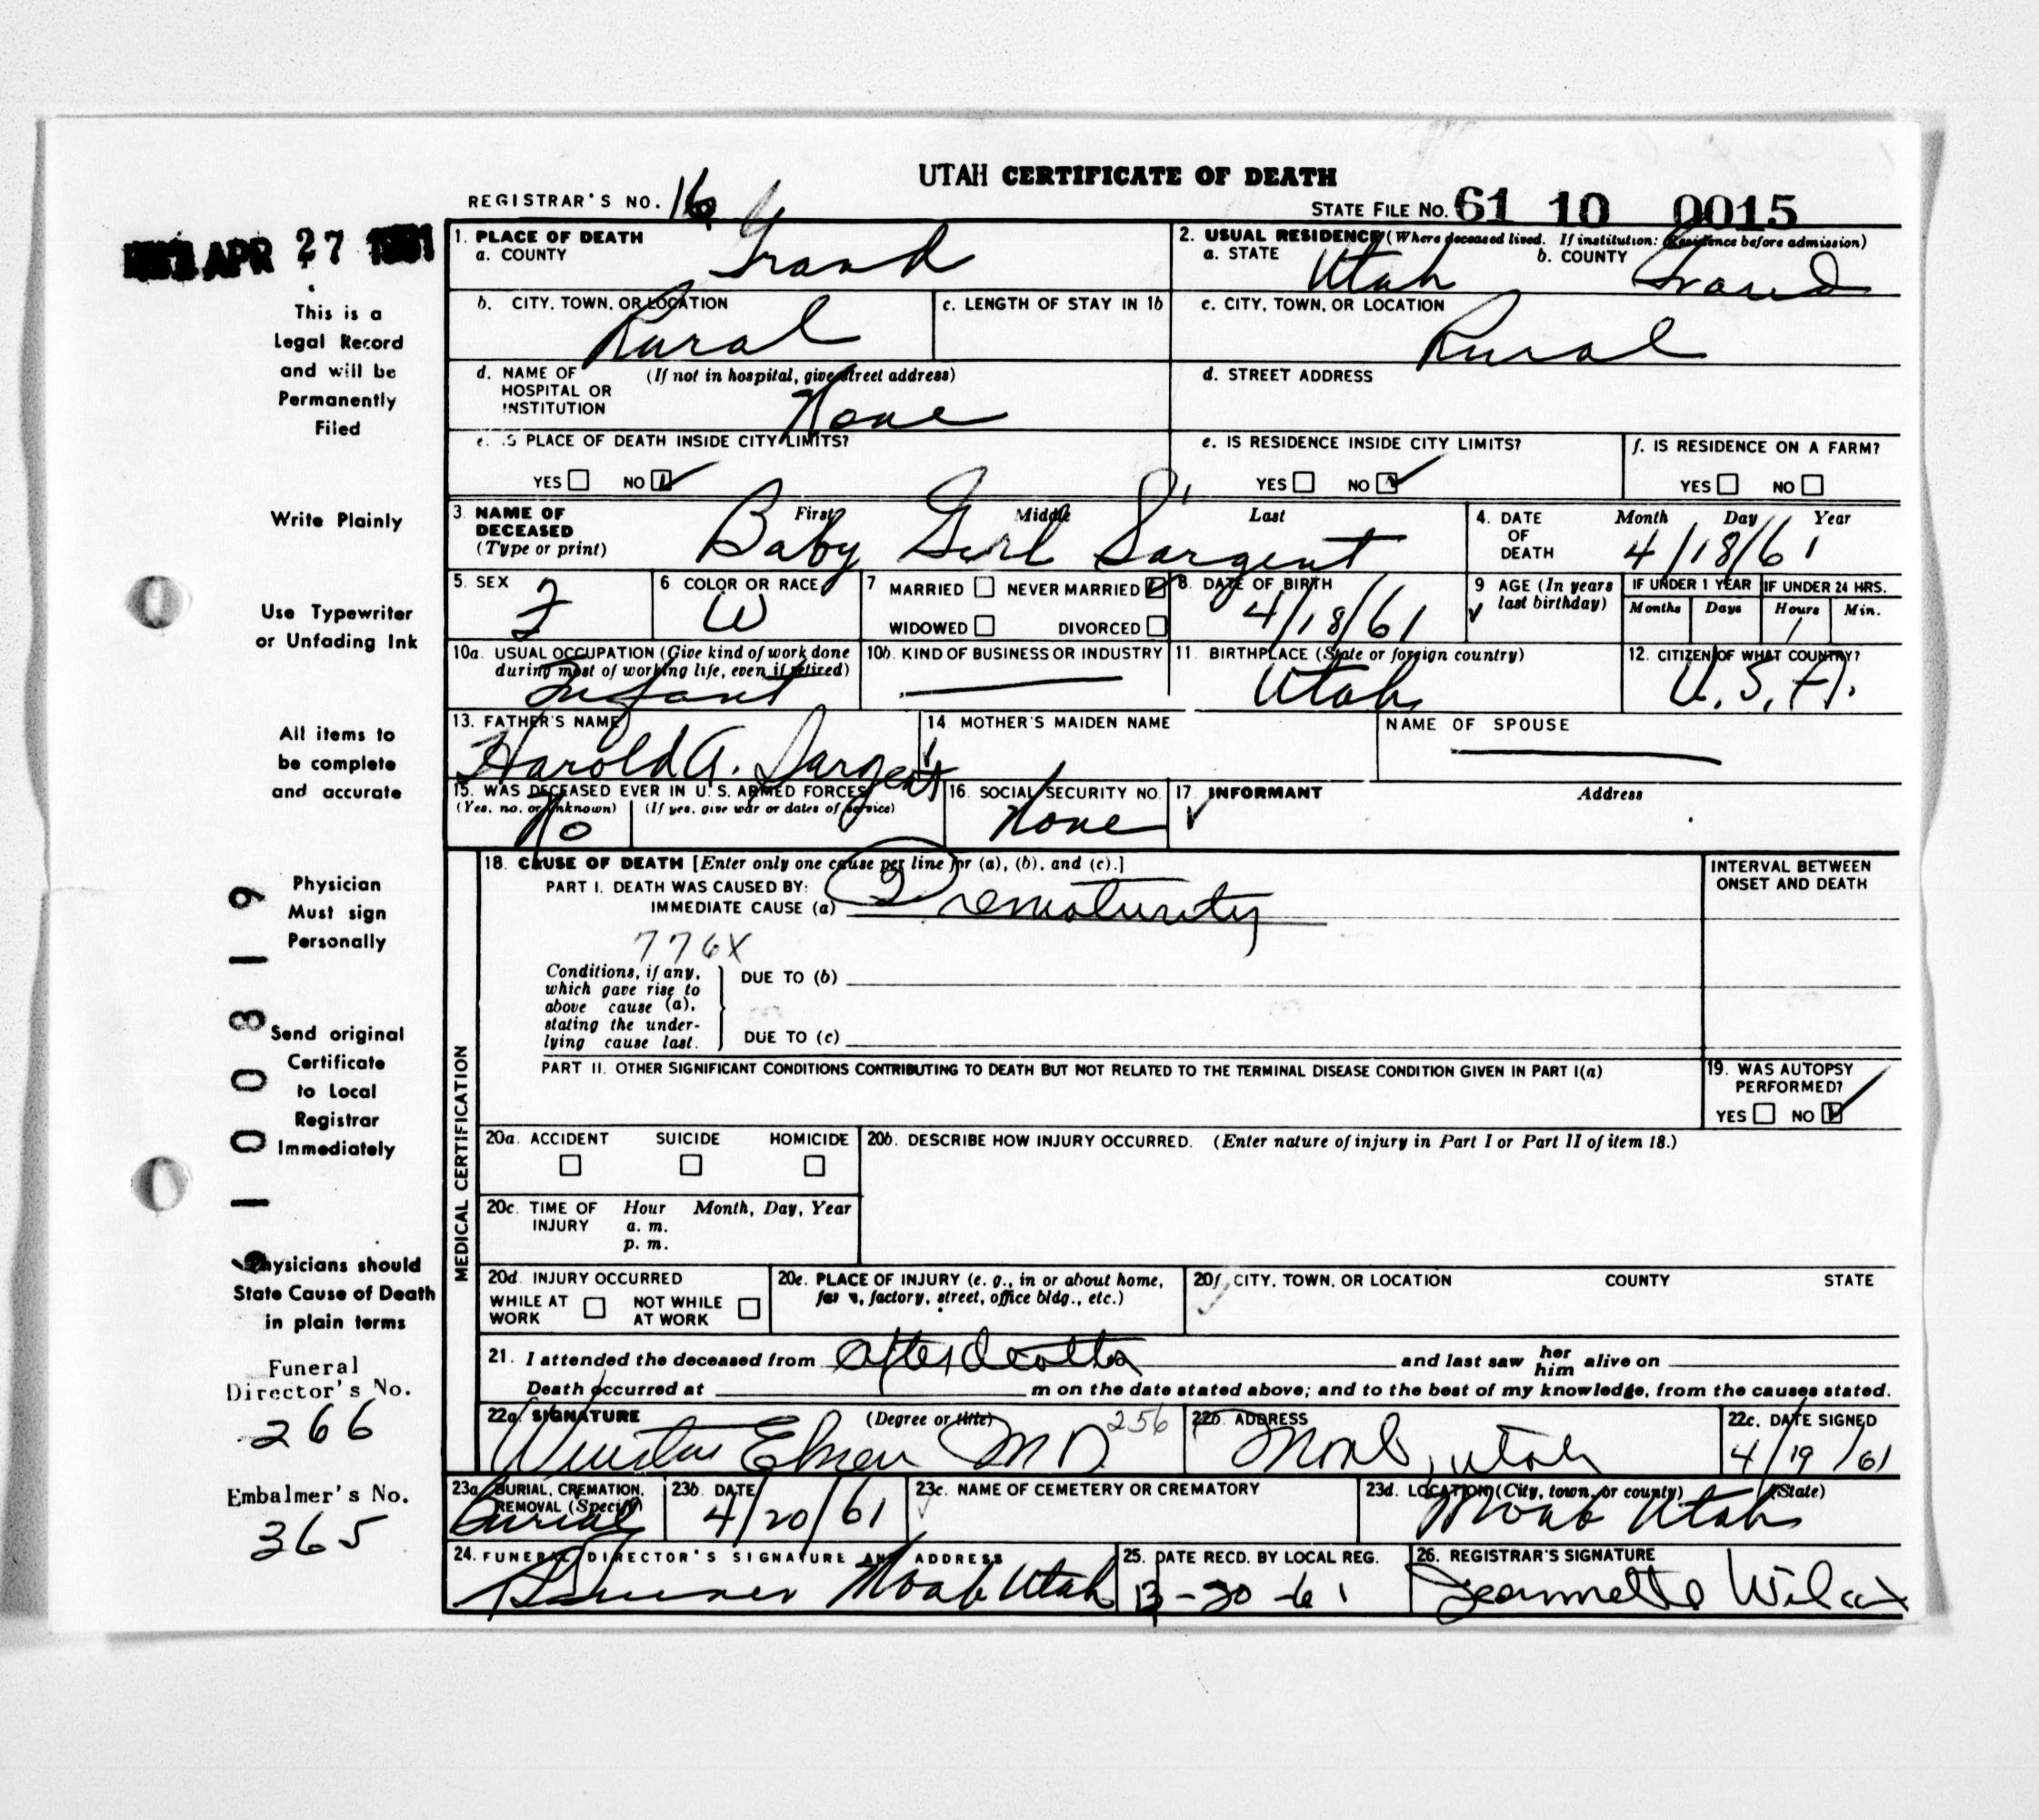 UTAH CERTIFICATE OF DEATH
REGISTRAR'S NO. 16
STATE FILE NO. 61 10 0015
APR 27 1961
This is a
Legal Record
and will be
Permanently
Filed
Write Plainly
Use Typewriter
or Unfading Ink
All items to
be complete
and accurate
Physician
Must sign
Personally
Send original
Certificate
to Local
Registrar
Immediately
Physicians should
State Cause of Death
in plain terms
Funeral
Director's No.
266
Embalmer's No.
365
1. PLACE OF DEATH
a. COUNTY Grand
2. USUAL RESIDENCE (Where deceased lived. If institution: Residence before admission)
a. STATE Utah b. COUNTY Grand
b. CITY, TOWN, OR LOCATION Rural
c. LENGTH OF STAY IN 1b
c. CITY, TOWN, OR LOCATION Rural
d. NAME OF HOSPITAL OR INSTITUTION (If not in hospital, give street address) None
d. STREET ADDRESS
e. IS PLACE OF DEATH INSIDE CITY LIMITS?
YES NO ✓
e. IS RESIDENCE INSIDE CITY LIMITS?
YES NO ✓
f. IS RESIDENCE ON A FARM?
YES NO
3. NAME OF DECEASED (Type or print) First Middle Last
Baby Girl Sargent
4. DATE OF DEATH Month Day Year
4/18/61
5. SEX F
6 COLOR OR RACE W
7 MARRIED NEVER MARRIED ✓
WIDOWED DIVORCED
8. DATE OF BIRTH 4/18/61
9 AGE (In years last birthday)
IF UNDER 1 YEAR Months Days
IF UNDER 24 HRS. Hours Min.
10a. USUAL OCCUPATION (Give kind of work done during most of working life, even if retired) Infant
10b. KIND OF BUSINESS OR INDUSTRY
11. BIRTHPLACE (State or foreign country) Utah
12. CITIZEN OF WHAT COUNTRY? U.S.A.
13. FATHER'S NAME Harold A. Sargent
14. MOTHER'S MAIDEN NAME
NAME OF SPOUSE
15. WAS DECEASED EVER IN U.S. ARMED FORCES
(Yes, no, or unknown) (If yes, give war or dates of service)
No
16. SOCIAL SECURITY NO. None
17. INFORMANT Address
MEDICAL CERTIFICATION
18. CAUSE OF DEATH [Enter only one cause per line for (a), (b), and (c).]
PART I. DEATH WAS CAUSED BY:
IMMEDIATE CAUSE (a) Prematurity
776X
Conditions, if any, which gave rise to above cause (a), stating the underlying cause last.
DUE TO (b)
DUE TO (c)
INTERVAL BETWEEN ONSET AND DEATH
PART II. OTHER SIGNIFICANT CONDITIONS CONTRIBUTING TO DEATH BUT NOT RELATED TO THE TERMINAL DISEASE CONDITION GIVEN IN PART I(a)
19. WAS AUTOPSY PERFORMED?
YES NO ✓
20a. ACCIDENT SUICIDE HOMICIDE
20b. DESCRIBE HOW INJURY OCCURRED. (Enter nature of injury in Part I or Part II of item 18.)
20c. TIME OF INJURY Hour a. m. p. m. Month, Day, Year
20d. INJURY OCCURRED
WHILE AT WORK NOT WHILE AT WORK
20e. PLACE OF INJURY (e. g., in or about home, farm, factory, street, office bldg., etc.)
20f. CITY, TOWN, OR LOCATION COUNTY STATE
21. I attended the deceased from after death and last saw her him alive on
Death occurred at m on the date stated above; and to the best of my knowledge, from the causes stated.
22a. SIGNATURE (Degree or title) 256
MD
22b. ADDRESS Moab, Utah
22c. DATE SIGNED 4/19/61
23a. BURIAL, CREMATION, REMOVAL (Specify) Burial
23b. DATE 4/20/61
23c. NAME OF CEMETERY OR CREMATORY
23d. LOCATION (City, town, or county) (State)
Moab Utah
24. FUNERAL DIRECTOR'S SIGNATURE AND ADDRESS
Moab Utah
25. DATE RECD. BY LOCAL REG.
26. REGISTRAR'S SIGNATURE
Jeannette Wilcox